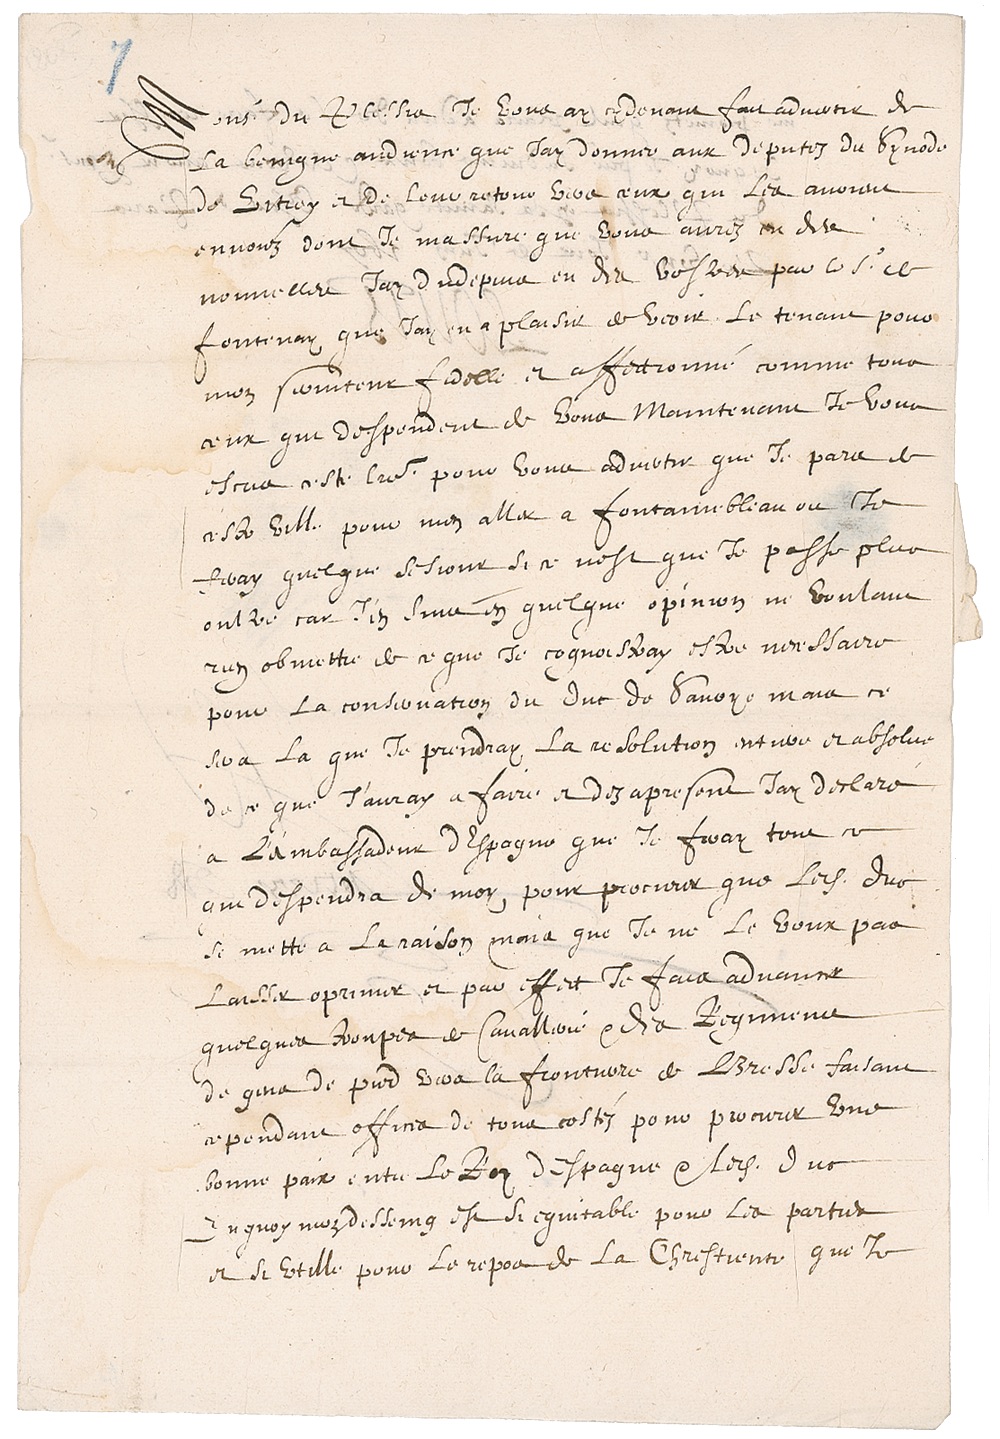 7
Monsr du Plessis Je vous ay cydevant fait advertir de
La benigne audience que Jay donnee aux deputez du Synode
de Vitrey et de leur retour vers ceux qui les avoient
envoiez dont Je massure que vous aurez eu des
nouvelles Jay du depuis en des vostres par le Sr de
fontenay que Jay eu a plaisir de veoir Le tenant pour
mon serviteur fidelle et affectionné comme tous
ceux qui despendent de vous Maintenant Je vous
escris ceste lre pour vous advertir que Je pars de
ceste ville pour men aller a fontainebleau ou Je
feray quelque sejour si ce nest que Je passe plus
oultre car J'en suis en quelque opinion ne voulant
rien obmettre de ce que Je cognoistray estre necessaire
pour La conservation du duc de Savoye mais ce
sera La que Je prendray La resolution entiere et absolue
de ce que J'auray a faire et dez apresent Jay declaré
a L'ambassadeur d'Espagne que Je feray tout ce
qui despendra de moy pour procurer que Led. duc
se mette a La raison mais que Je ne Le veux pas
Laisser oprimer et par effect Je fais advancer
quelques troupes de Cavallerie & des Regimens
de gens de pied vers la frontiere de Bresse faisant
cependant offices de tous costés pour procurer une
bonne paix entre Le Roy d'espagne & led. duc
En quoy mon desseing est si equitable pour Les parties
et si utille pour Le repos de La Chrestienté que Je